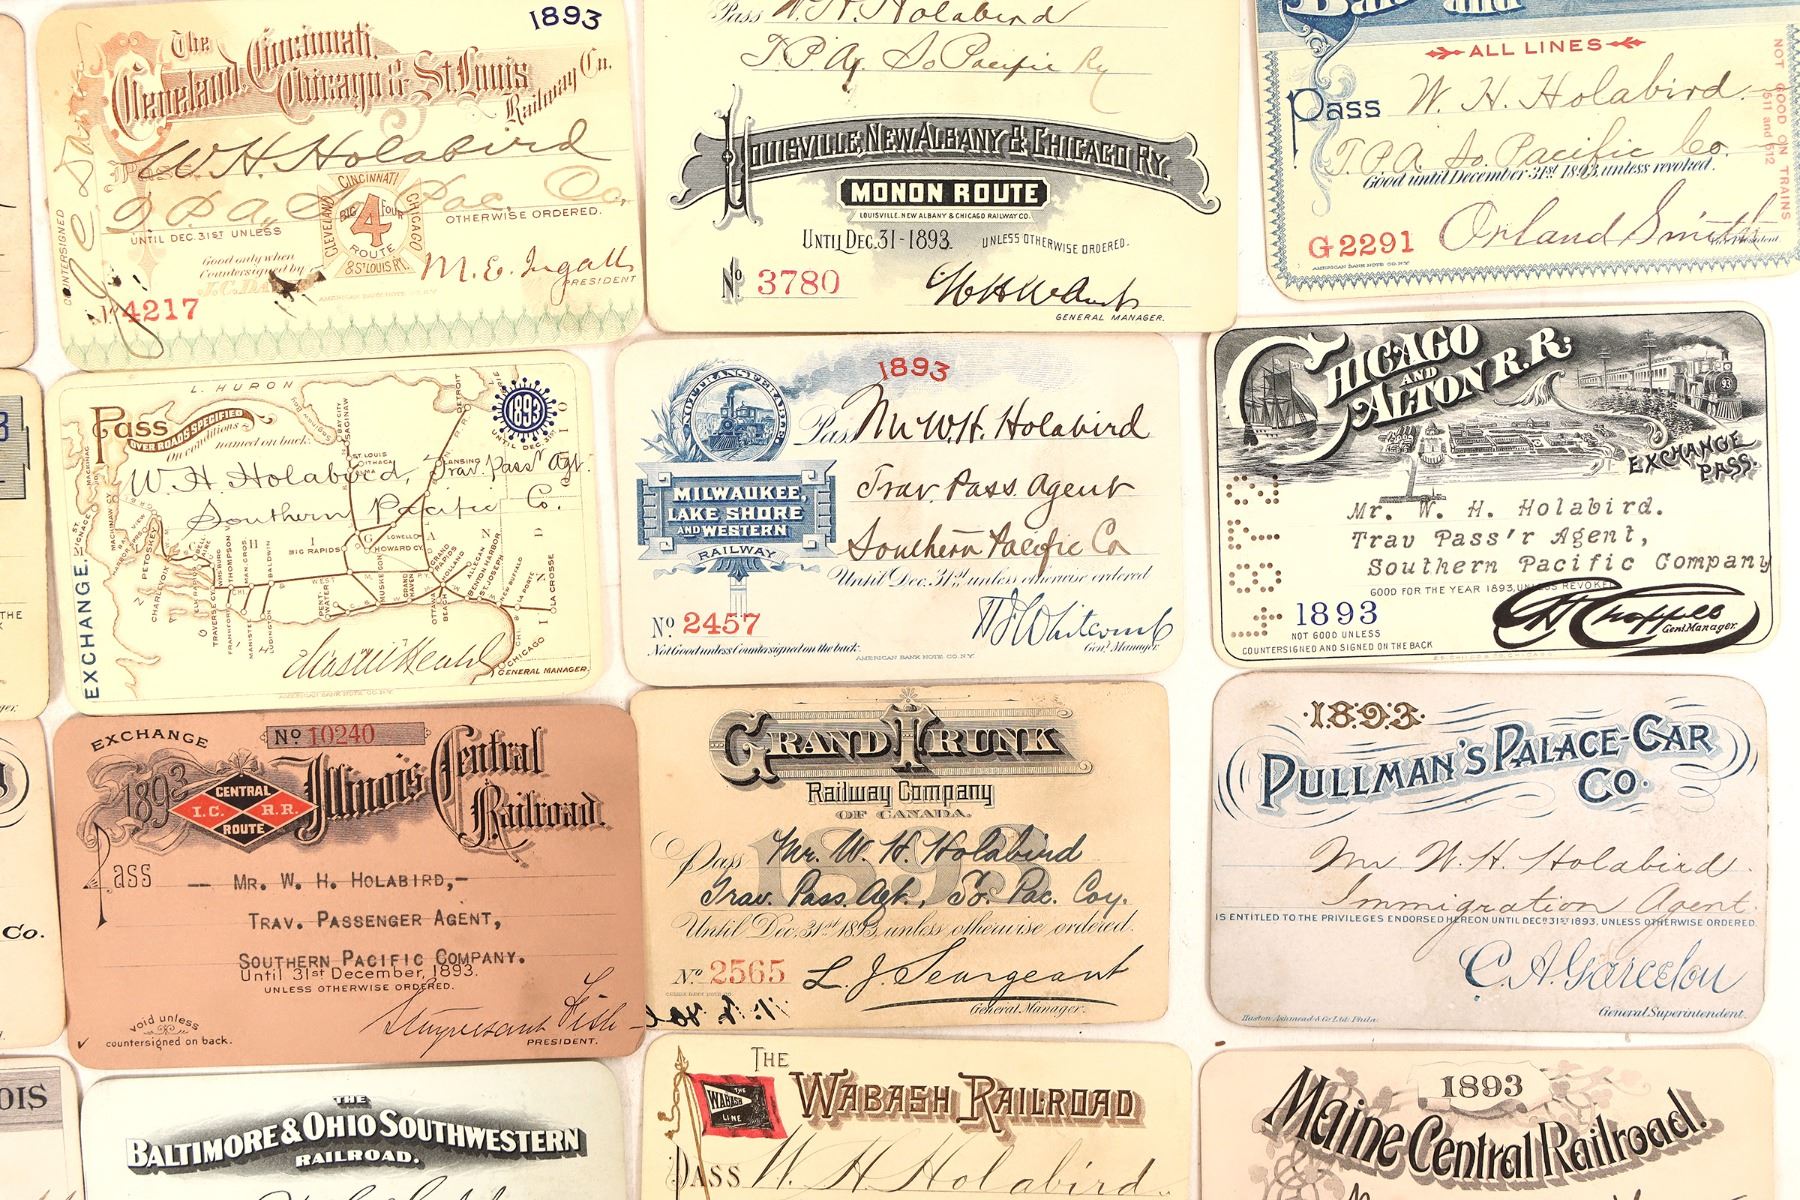 1893
The
Cleveland, Cincinnati,
Chicago & St. Louis
Railway Co.
W. H. Holabird
T. P. A. So Pac. Co.
CINCINNATI
BIG FOUR
4
ROUTE
CLEVELAND
CHICAGO
& ST. LOUIS RY.
OTHERWISE ORDERED.
UNTIL DEC. 31ST UNLESS
Good only when
Countersigned by
COUNTERSIGNED
M. E. Ingalls
PRESIDENT
AMERICAN BANK NOTE CO. N.Y.
No 4217
Pass W. H. Holabird
T. P. A. So Pacific Ry
LOUISVILLE, NEW ALBANY & CHICAGO RY.
MONON ROUTE
LOUISVILLE, NEW ALBANY & CHICAGO RAILWAY CO.
UNTIL DEC. 31-1893. UNLESS OTHERWISE ORDERED.
No 3780
GENERAL MANAGER.
and
ALL LINES
Pass W. H. Holabird
T. P. A. So. Pacific Co.
Good until December 31st 1893, unless revoked.
G2291
Orland Smith
Vice President.
AMERICAN BANK NOTE CO. N.Y.
NOT GOOD ON TRAINS
511 and 512
L. HURON
Pass
OVER ROADS SPECIFIED
On conditions named on back:
1893
UNTIL DEC. 31ST
W. H. Holabird, Trav. Passr Agt.
Southern Pacific Co.
EXCHANGE.
DETROIT
BAY CITY
SAGINAW
Saginaw Bay
ST. LOUIS
ITHACA
ALMA
LANSING
MACKINAC
PETOSKEY
CHARLEVOIX
THOMPSONV
BALDWIN
BIG RAPIDS
HOWARD CY.
LOWELL
GRAND RAPIDS
HOLLAND
ALLEGAN
BENTON HARBOR
ST. JOSEPH
NEW BUFFALO
LA CROSSE
LA PORTE
MUSKEGON
GRAND HAVEN
OTTAWA BEACH
PENTWATER
LUDINGTON
MANISTEE
FRANKFORT
TRAVERSE CY.
ELK RAPIDS
CHICAGO
GENERAL MANAGER.
AMERICAN BANK NOTE CO. N.Y.
1893
NOT TRANSFERABLE
Pass Mr W. H. Holabird
Trav Pass. Agent
Southern Pacific Co
MILWAUKEE,
LAKE SHORE
AND WESTERN
RAILWAY
Until Dec. 31st unless otherwise ordered
No 2457
Not Good unless Countersigned on the back.
AMERICAN BANK NOTE CO. N.Y.
Genl Manager.
CHICAGO
AND
ALTON R.R.
93
EXCHANGE
PASS.
Mr. W. H. Holabird.
Trav Pass'r Agent,
Southern Pacific Company
GOOD FOR THE YEAR 1893, UNLESS REVOKED
1893
NOT GOOD UNLESS
COUNTERSIGNED AND SIGNED ON THE BACK
C H Chappell
Genl. Manager.
EXCHANGE
No 10240
1893
Illinois Central
Railroad.
CENTRAL
I.C. R.R.
ROUTE
Pass — MR. W. H. HOLABIRD,-
TRAV. PASSENGER AGENT,
SOUTHERN PACIFIC COMPANY.
Until 31st December, 1893.
UNLESS OTHERWISE ORDERED.
void unless
countersigned on back.
Stuyvesant Fish
PRESIDENT.
GRAND TRUNK
Railway Company
OF CANADA.
1893
Pass Mr. W. H. Holabird
Trav. Pass. Agt., So. Pac. Coy.
Until Dec. 31st 1893, unless otherwise ordered.
No 2565
L. J. Seargeant
General Manager.
1893
PULLMAN'S PALACE CAR
Co.
Mr W. H. Holabird
Immigration Agent.
IS ENTITLED TO THE PRIVILEGES ENDORSED HEREON UNTIL DECR 31ST 1893, UNLESS OTHERWISE ORDERED.
C. A. Garcelon
General Superintendent.
Huston Ashmead & Co Ltd. Phila.
THE
Co.
OIS
THE
BALTIMORE & OHIO SOUTHWESTERN
RAILROAD.
THE
WABASH RAILROAD
THE
WABASH
LINE
PASS W. H. Holabird
1893
Maine Central Railroad.